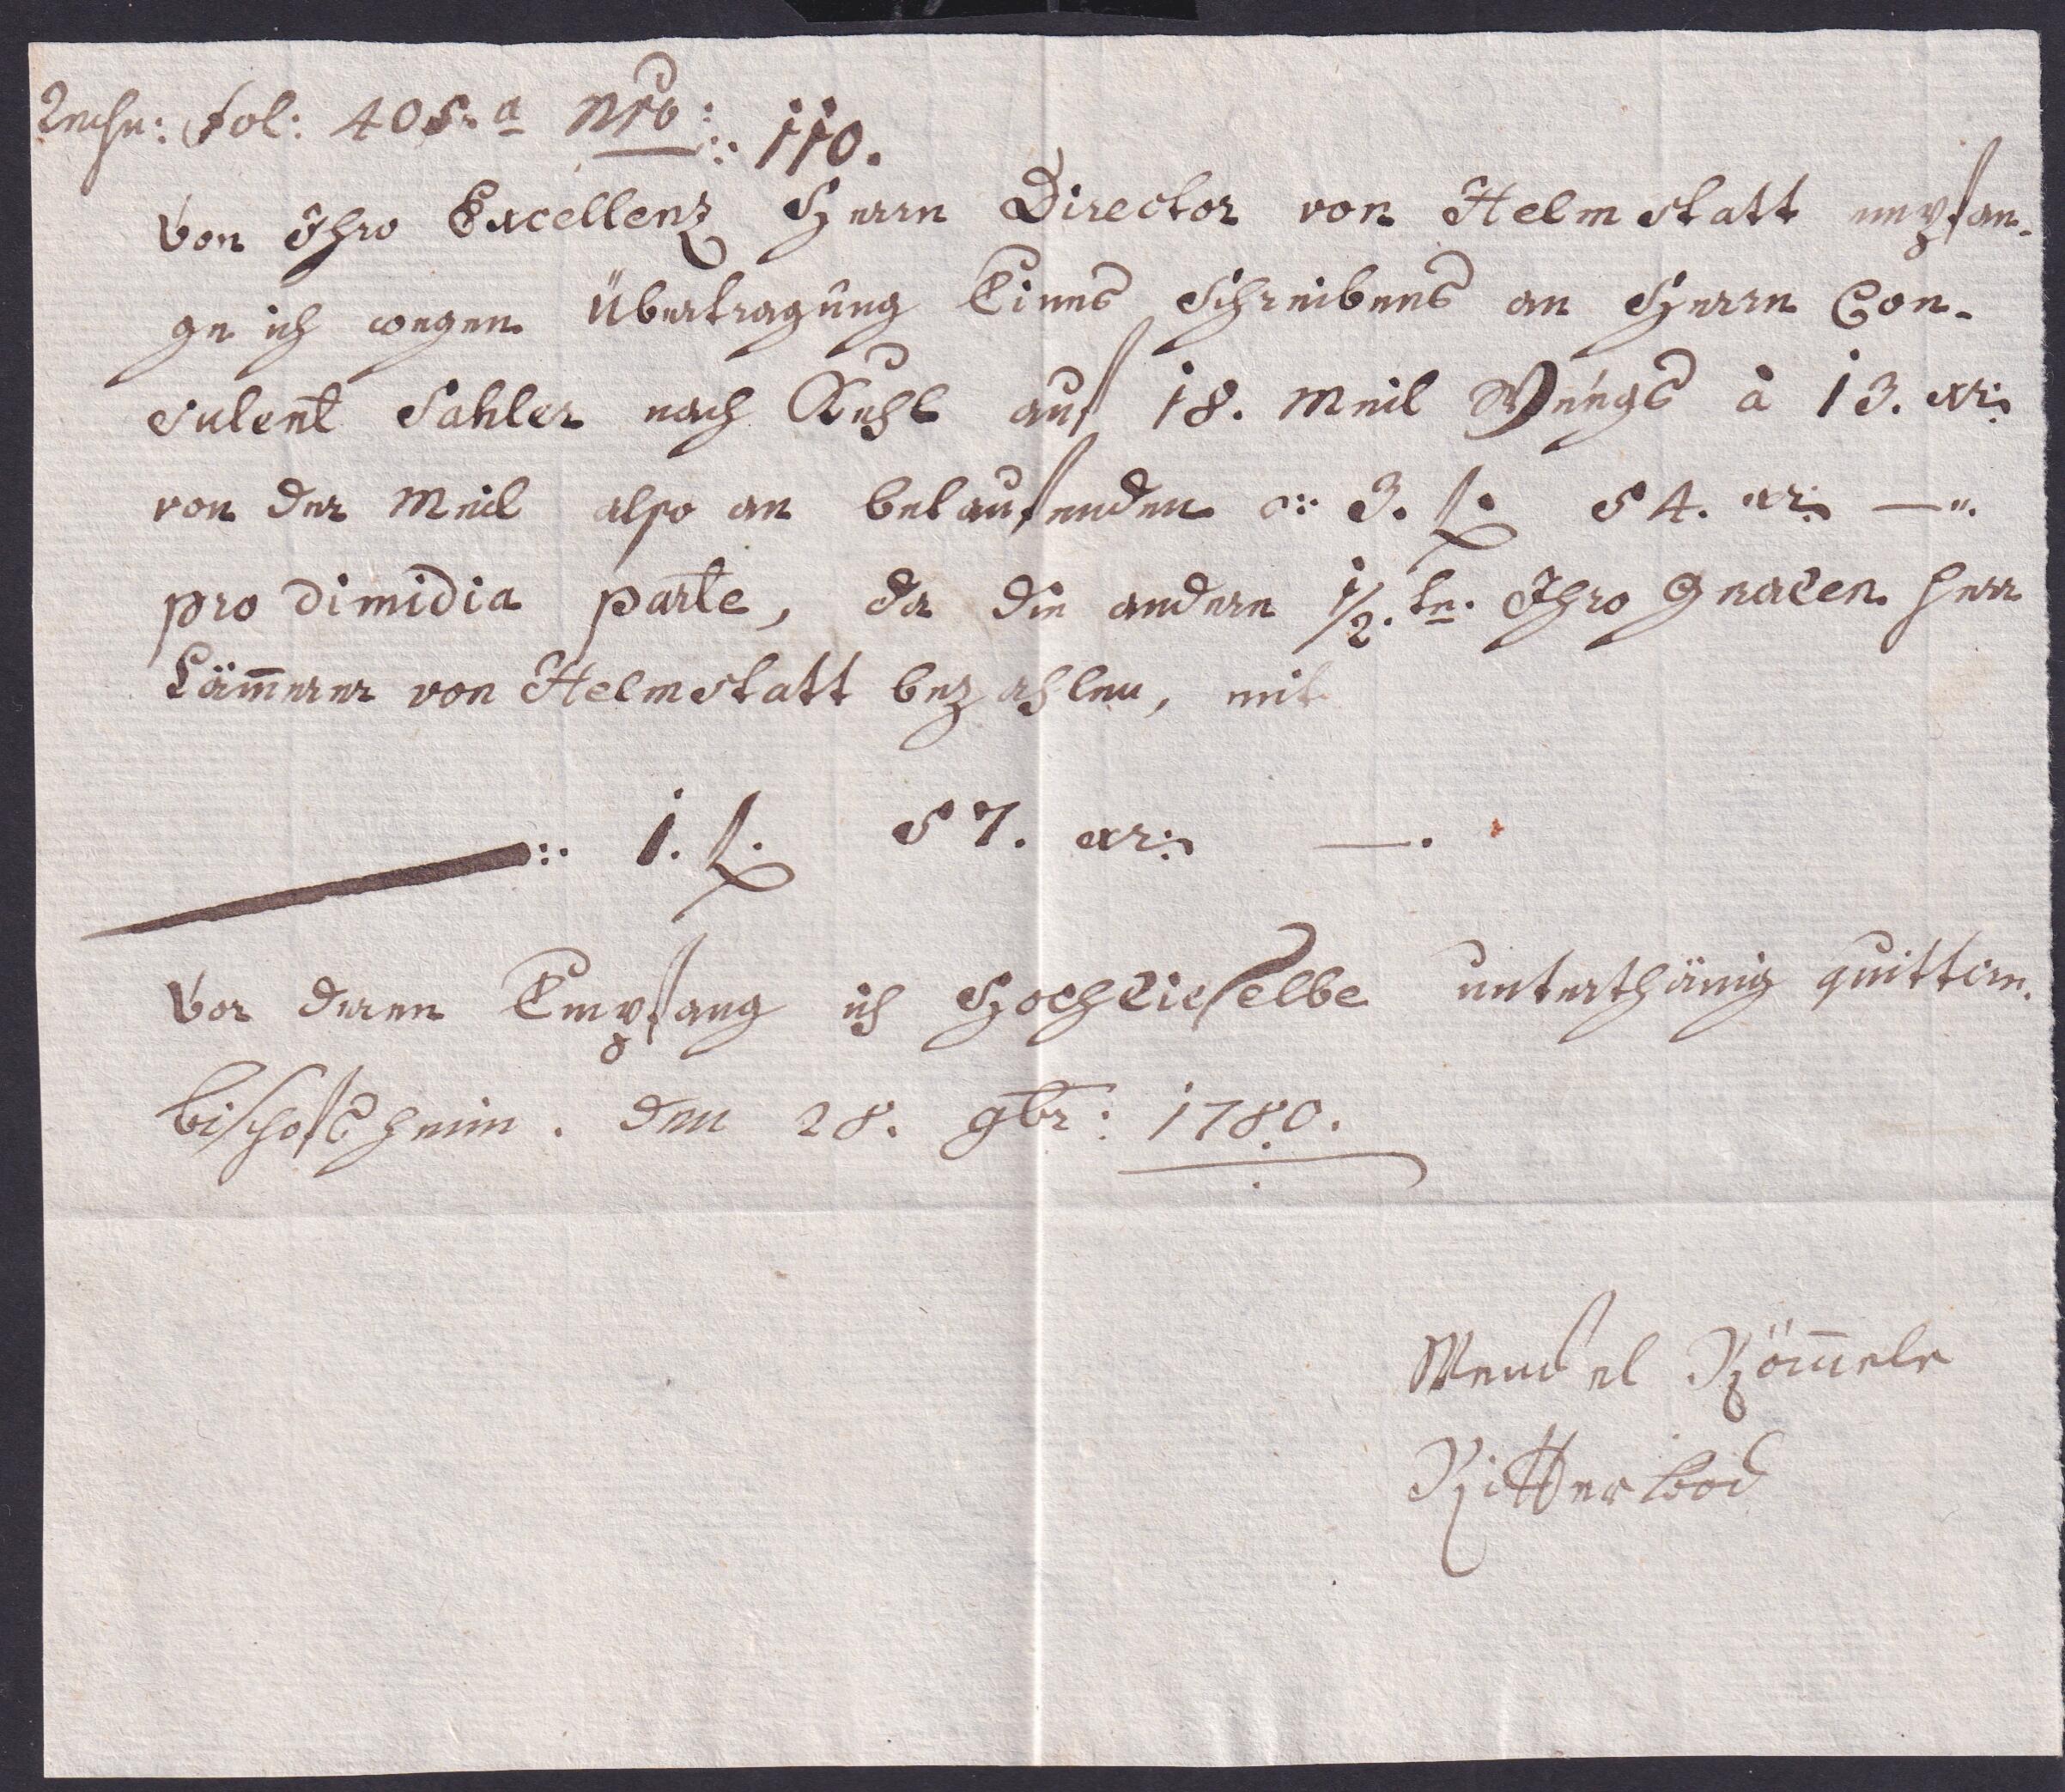 Rechn: fol: 405.a Nro: 110.
Von Ihro Excellenz Herrn Director von Helmstatt empfan-
ge ich wegen Übertragung Eines Schreibens an Herrn Con-
sulent Sahler nach Kehl auf 18. Meil Weegs à 13. xr:
von der Meil also an belaufenden :: 3. f. 54. xr: —.
pro dimidia parte, da die andere 1/2.te. Ihro Gnaden Herr
Cämerer von Helmstatt bezahlen, mit
:: 1. f. 57. xr: —.
Vor deren Empfang ich Hochdieselbe unterthänig quittire.
bischofsheim. den 28. 9br: 1780.
Wendel Römele
Ritterbod